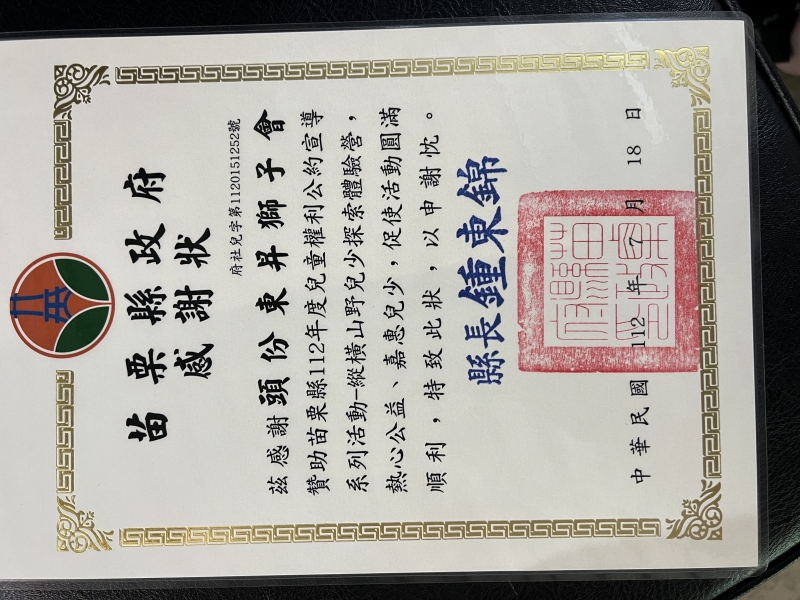 苗栗縣政府
感謝狀
府社兒字第1120151252號
茲感謝頭份東昇獅子會
贊助苗栗縣112年度兒童權利公約宣導
系列活動-縱橫山野兒少探索體驗營，
熱心公益、嘉惠兒少，促使活動圓滿
順利，特致此狀，以申謝忱。
縣長鍾東錦
中華民國 112 年 7 月 18 日